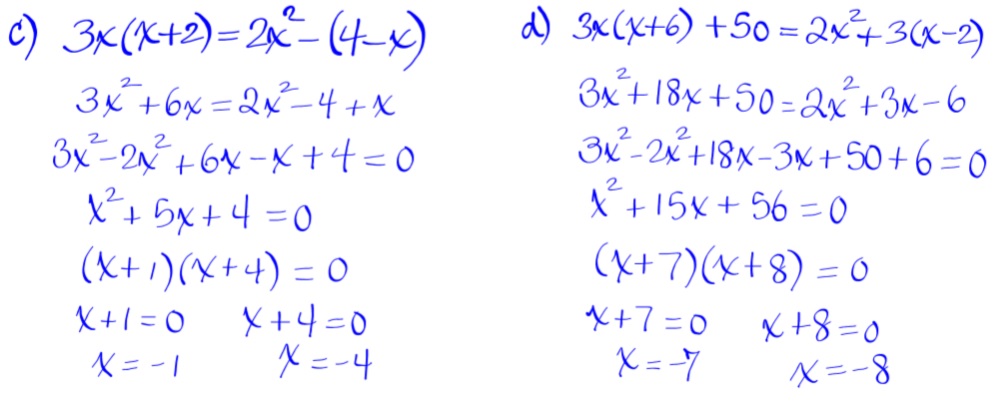 c) 3x(x+2)=2x²-(4-x)
3x²+6x=2x²-4+x
3x²-2x²+6x-x+4=0
x²+5x+4=0
(x+1)(x+4)=0
x+1=0 x+4=0
x=-1 x=-4
d) 3x(x+6)+50=2x²+3(x-2)
3x²+18x+50=2x²+3x-6
3x²-2x²+18x-3x+50+6=0
x²+15x+56=0
(x+7)(x+8)=0
x+7=0 x+8=0
x=-7 x=-8